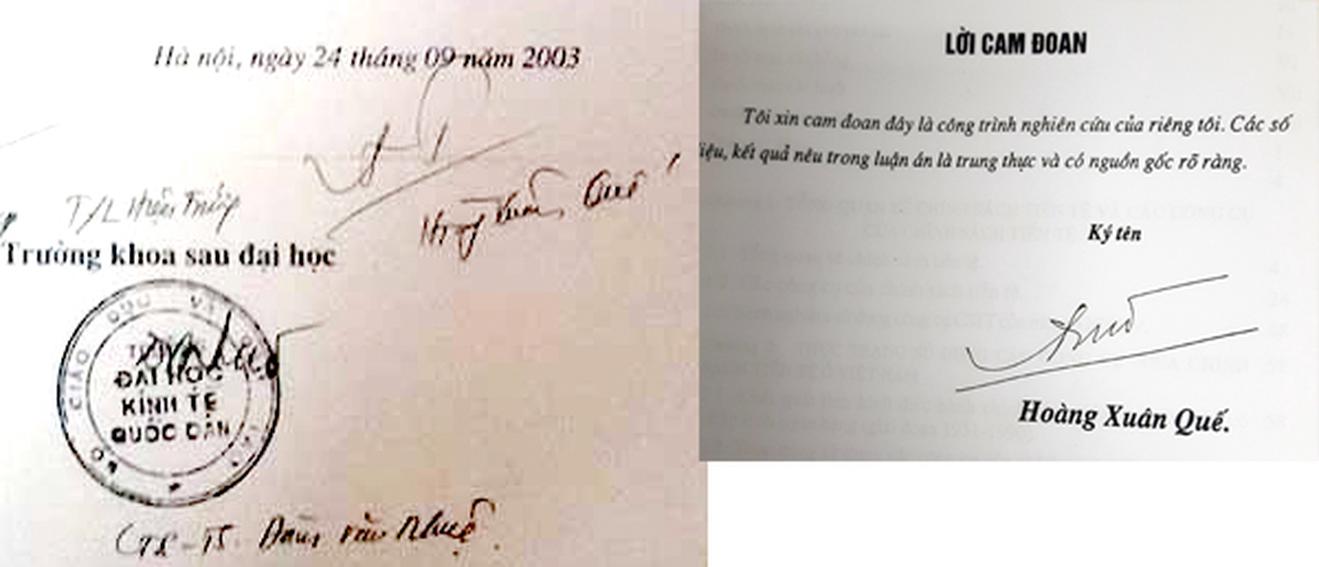 Hà nội, ngày 24 tháng 09 năm 2003
T/L Hiệu Trưởng
Xuân Quế
Trưởng khoa sau đại học
BỘ GIÁO DỤC VÀ
TRƯỜNG
ĐẠI HỌC
KINH TẾ
QUỐC DÂN
văn Nhuệ
LỜI CAM ĐOAN
Tôi xin cam đoan đây là công trình nghiên cứu của riêng tôi. Các số
liệu, kết quả nêu trong luận án là trung thực và có nguồn gốc rõ ràng.
Ký tên
Hoàng Xuân Quế.